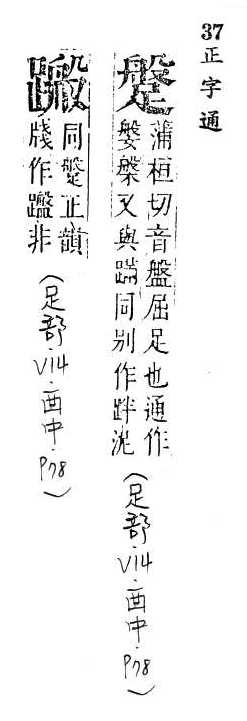 37正字通
蒲桓切音盤屈足也通作
媻槃又與蹣同別作跘泥
(足部·V14·酉中·P78)
同正韻
牋作非
(足部·V14·酉中·P78)